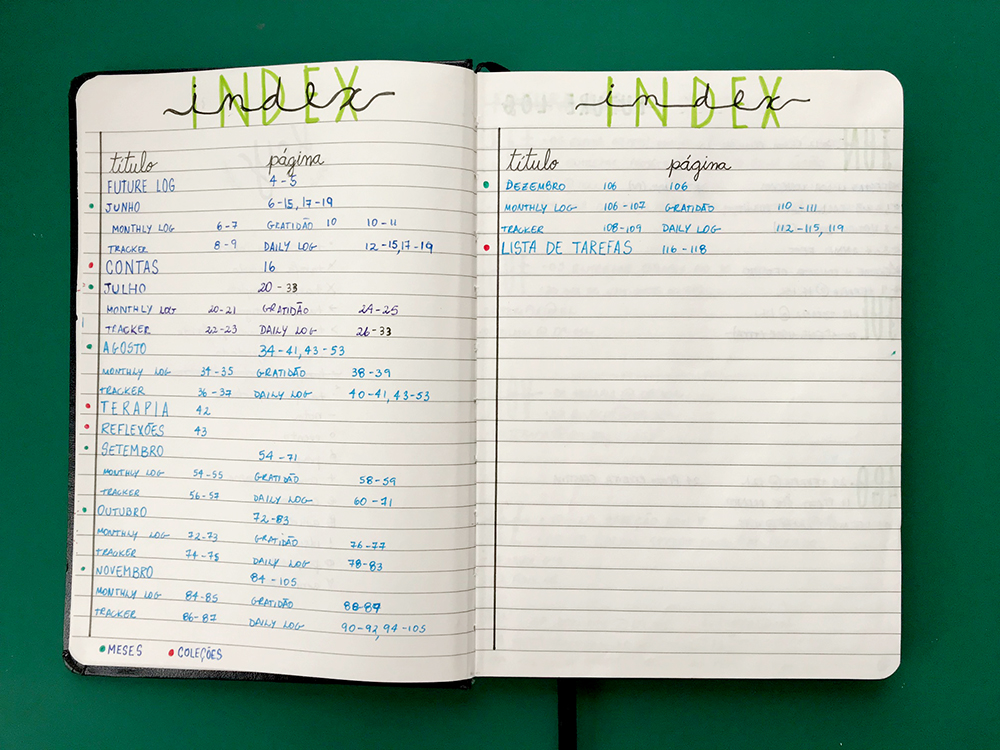 INDEX
index
título página
FUTURE LOG 4-5
JUNHO 6-15, 17-19
MONTHLY LOG 6-7 GRATIDÃO 10 10-11
TRACKER 8-9 DAILY LOG 12-15, 17-19
CONTAS 16
JULHO 20-33
MONTHLY LOG 20-21 GRATIDÃO 24-25
TRACKER 22-23 DAILY LOG 26-33
AGOSTO 34-41, 43-53
MONTHLY LOG 34-35 GRATIDÃO 38-39
TRACKER 36-37 DAILY LOG 40-41, 43-53
TERAPIA 42
REFLEXÕES 43
SETEMBRO 54-71
MONTHLY LOG 54-55 GRATIDÃO 58-59
TRACKER 56-57 DAILY LOG 60-71
OUTUBRO 72-83
MONTHLY LOG 72-73 GRATIDÃO 76-77
TRACKER 74-75 DAILY LOG 78-83
NOVEMBRO 84-105
MONTHLY LOG 84-85 GRATIDÃO 88-89
TRACKER 86-87 DAILY LOG 90-92, 94-105
MESES COLEÇÕES
INDEX
index
título página
DEZEMBRO 106 106
MONTHLY LOG 106-107 GRATIDÃO 110-111
TRACKER 108-109 DAILY LOG 112-115, 119
LISTA DE TAREFAS 116-118